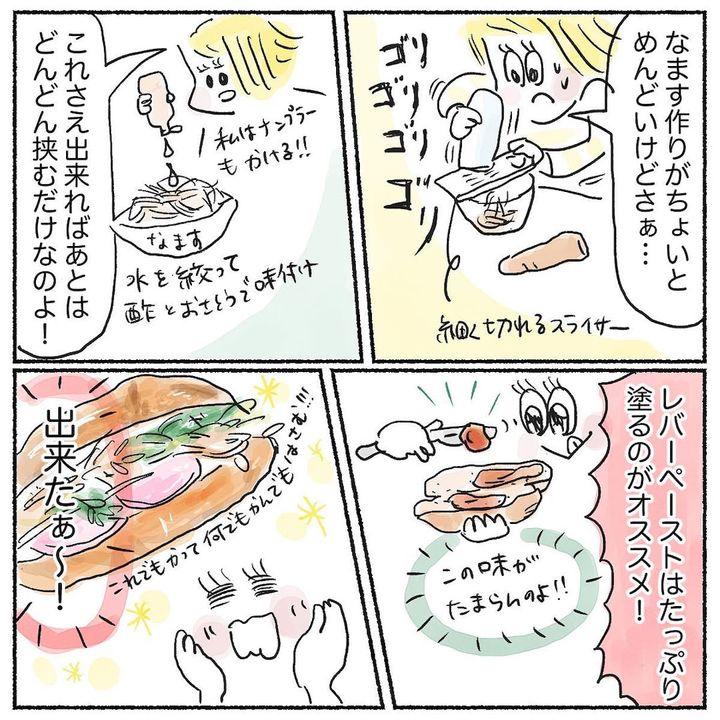 なます作りがちょいと
めんどいけどさぁ…
ゴリ
ゴリ
ゴリ
ゴリ
細く切れるスライサー
これさえ出来ればあとは
どんどん挟むだけなのよ！
私はナンプラー
もかける!!
なます
水を絞って
酢とおさとうで味付け
レバーペーストはたっぷり
塗るのがオススメ！
この味が
たまらんのよ!!
出来だぁ〜！
これでもかって何でもかんでも
はさむ!!!